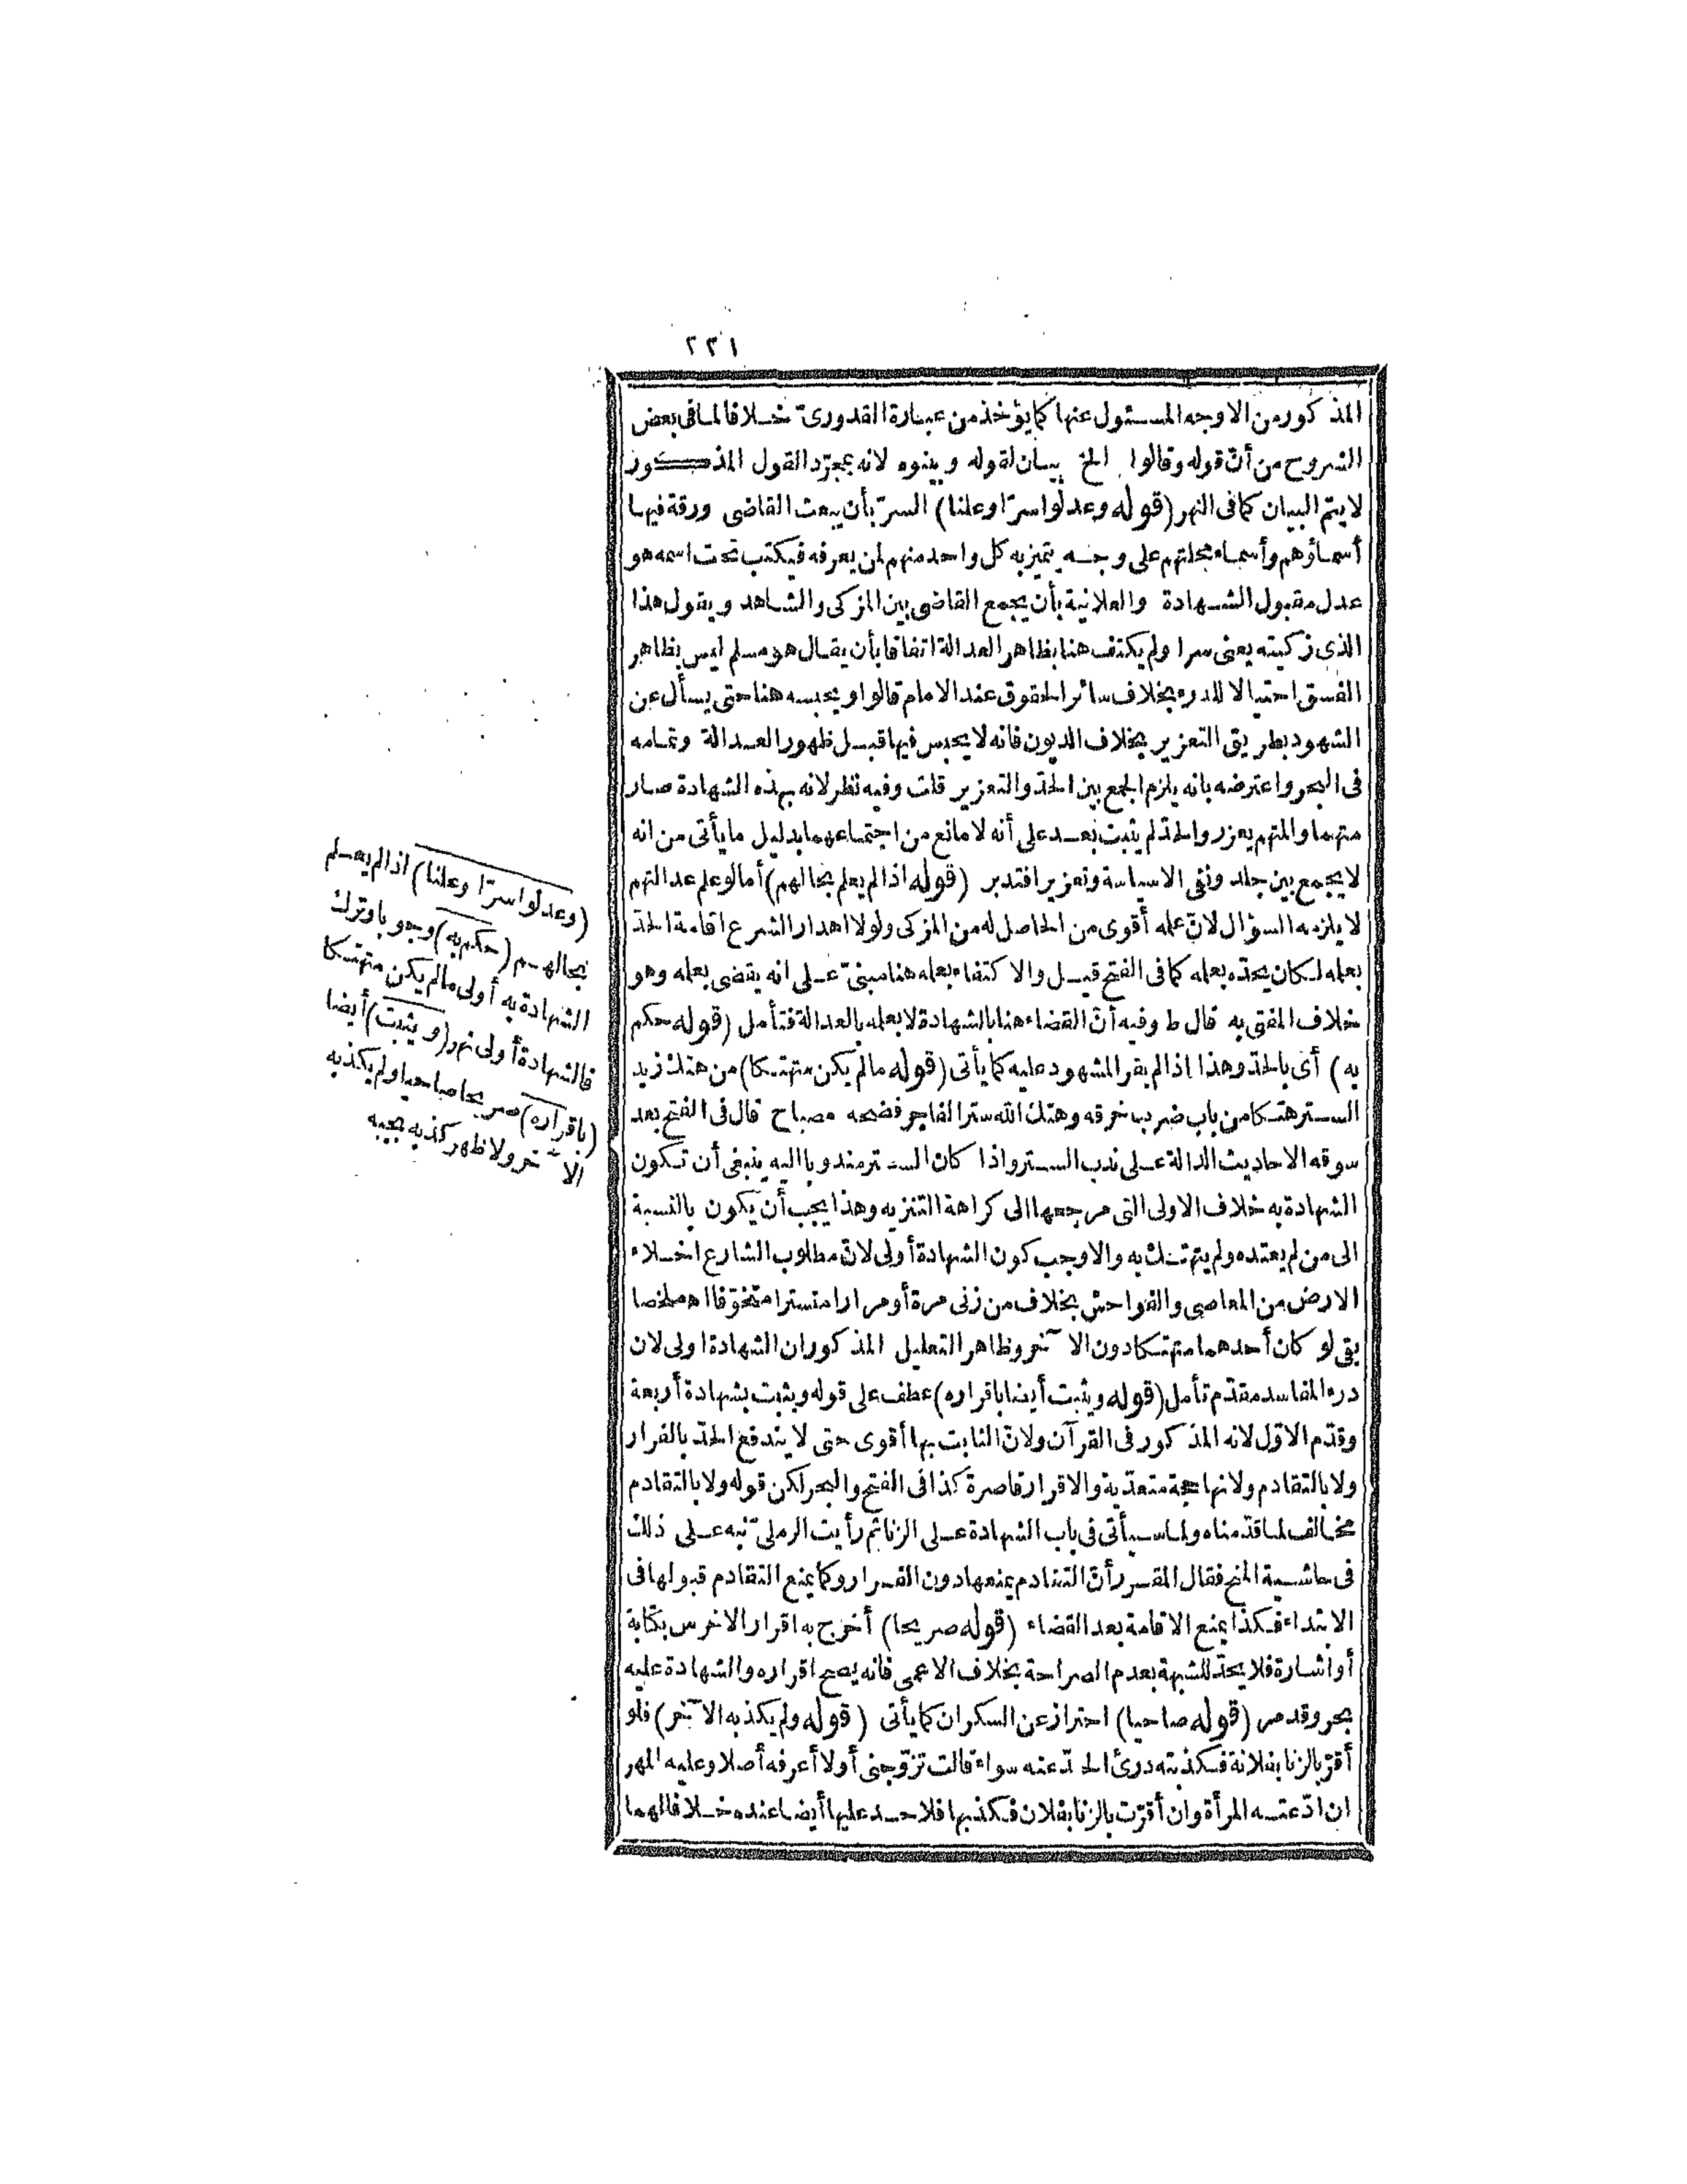 ٢٢١
المذكور من الاوجه المسئول عنها كما يؤخذ من عبارة القدورىّ خلافا لما فى بعض
الشروح من أنّ قوله وقالوا الخ بيان لقوله وبينوه لانه بمجرّد القول المذكور
لا يتم البيان كما فى النهر (قوله وعدلوا سرّا وعلنا) السرّ بأن يبعث القاضى ورقة فيها
أسماؤهم وأسماء محلتهم على وجه يتميز به كل واحد منهم لمن يعرفه فيكتب تحت اسمه هو
عدل مقبول الشهادة والعلانية بأن يجمع القاضى بين المزكى والشاهد ويقول هذا
الذى زكيته يعنى سرا ولم يكتف هنا بظاهر العدالة اتفاقا بأن يقال هو مسلم ليس بظاهر
الفسق احتيالا للدرء بخلاف سائر الحقوق عند الامام قالوا ويحبسه هنا حتى يسأل عن
الشهود بطريق التعزير بخلاف الديون فانه لا يحبس فيها قبل ظهور العدالة وتمامه
فى البحر واعترضه بانه يلزم الجمع بين الحدّ والتعزير قلت وفيه نظر لانه بهذه الشهادة صار
متهما والمتهم يعزر والحدّ لم يثبت بعد على أنه لا مانع من اجتماعهما بدليل ما يأتى من انه
لا يجمع بين جلد ونفى الا سياسة وتعزيرا فتدبر (قوله اذا لم يعلم بحالهم) أما لو علم عدالتهم
لا يلزمه السؤال لانّ علمه أقوى من الحاصل له من المزكى ولولا اهدار الشرع اقامة الحدّ
بعلمه لكان يحدّه بعلمه كما فى الفتح قيل والاكتفاء بعلمه هنا مبنىّ على انه يقضى بعلمه وهو
خلاف المفتى به قال ط وفيه أنّ القضاء هنا بالشهادة لا بعلمه بالعدالة فتأمل (قوله حكم
به) أى بالحدّ وهذا اذا لم يقر المشهود عليه كما يأتى (قوله ما لم يكن متهتكا) من هتك زيد
الستر هتكا من باب ضرب خرقه وهتك الله ستر الفاجر فضحه مصباح قال فى الفتح بعد
سوقه الاحاديث الدالة على ندب الستر واذا كان الستر مندوبا اليه ينبغى أن تكون
الشهادة به خلاف الاولى التى مرجعها الى كراهة التنزيه وهذا يجب أن يكون بالنسبة
الى من لم يعتده ولم يتهتك به والا وجب كون الشهادة أولى لانّ مطلوب الشارع اخلاء
الارض من المعاصى والفواحش بخلاف من زنى مرة أو مرارا متسترا متخوّفا اه ملخصا
بقى لو كان أحدهما متهتكا دون الآخر وظاهر التعليل المذكور ان الشهادة اولى لان
درء المفاسد مقدّم تأمل (قوله ويثبت أيضا باقراره) عطف على قوله ويثبت بشهادة أربعة
وقدّم الاوّل لانه المذكور فى القرآن ولانّ الثابت بها أقوى حتى لا يندفع الحدّ بالفرار
ولا بالتقادم ولانها حجة متعدّية والاقرار قاصرة كذا فى الفتح والبحر لكن قوله ولا بالتقادم
مخالف لما قدّمناه ولما سيأتى فى باب الشهادة على الزنا ثم رأيت الرملىّ نبه على ذلك
فى حاشية المنح فقال المقرر أنّ التقادم يمنعها دون الفرار وكما يمنع التقادم قبولها فى
الابتداء فكذا يمنع الاقامة بعد القضاء (قوله صريحا) أخرج به اقرار الاخرس بكتابة
أو اشارة فلا يحدّ للشبهة بعدم الصراحة بخلاف الاعمى فانه يصح اقراره والشهادة عليه
بحر وقد مر (قوله صاحيا) احتراز عن السكران كما يأتى (قوله ولم يكذبه الآخر) فلو
أقرّ بالزنا بفلانة فكذبته درئ الحدّ عنه سواء قالت تزوّجنى أو لا أعرفه أصلا وعليه المهر
ان ادّعته المرأة وان أقرّت بالزنا بفلان فكذبها فلا حد عليها أيضا عنده خلافا لهما
(وعدلوا سرّا وعلنا) اذا لم يعلم
بحالهم (حكم به) وجوبا وترك
الشهادة به أولى ما لم يكن متهتكا
فالشهادة أولى نهر (ويثبت) أيضا
(باقراره) صريحا صاحيا ولم يكذبه
الآخر ولا ظهر كذبه بجبه